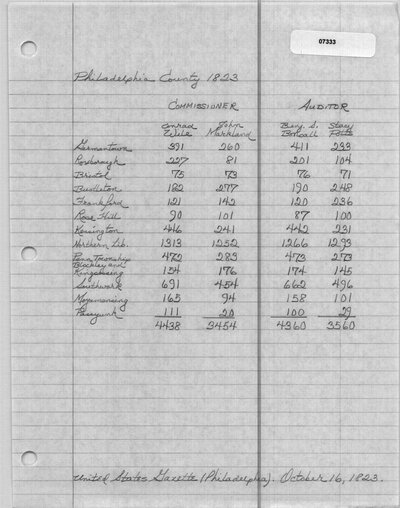 07333
Philadelphia County 1823
COMMISSIONER AUDITOR
Conrad John Benj. S. Stacy
Wile Markland Bonsall Potts
Germantown 391 260 411 233
Roxborough 227 81 201 104
Bristol 75 73 76 71
Bustleton 182 277 190 248
Frankford 121 142 120 236
Rose Hill 90 101 87 100
Kensington 446 241 442 231
Northern Lib. 1313 1252 1266 1293
Penn Township 472 283 473 273
Blockley and
Kingsessing 154 176 174 145
Southwark 691 454 662 496
Moyamensing 165 94 158 101
Passyunk 111 20 100 29
4438 3454 4360 3560
United States Gazette (Philadelphia). October 16, 1823.